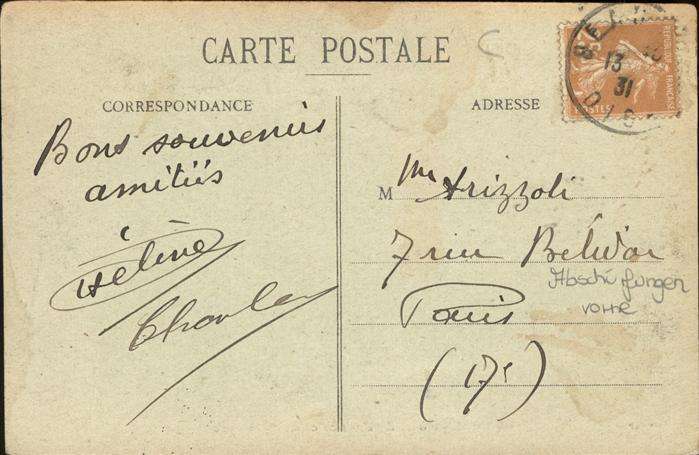 CARTE POSTALE
CORRESPONDANCE
Bons souvenirs
amitiés
Hélène
Charles
ADRESSE
M me Arizzoli
7 rue
Paris
(17e)
RÉPUBLIQUE FRANÇAISE
13
31